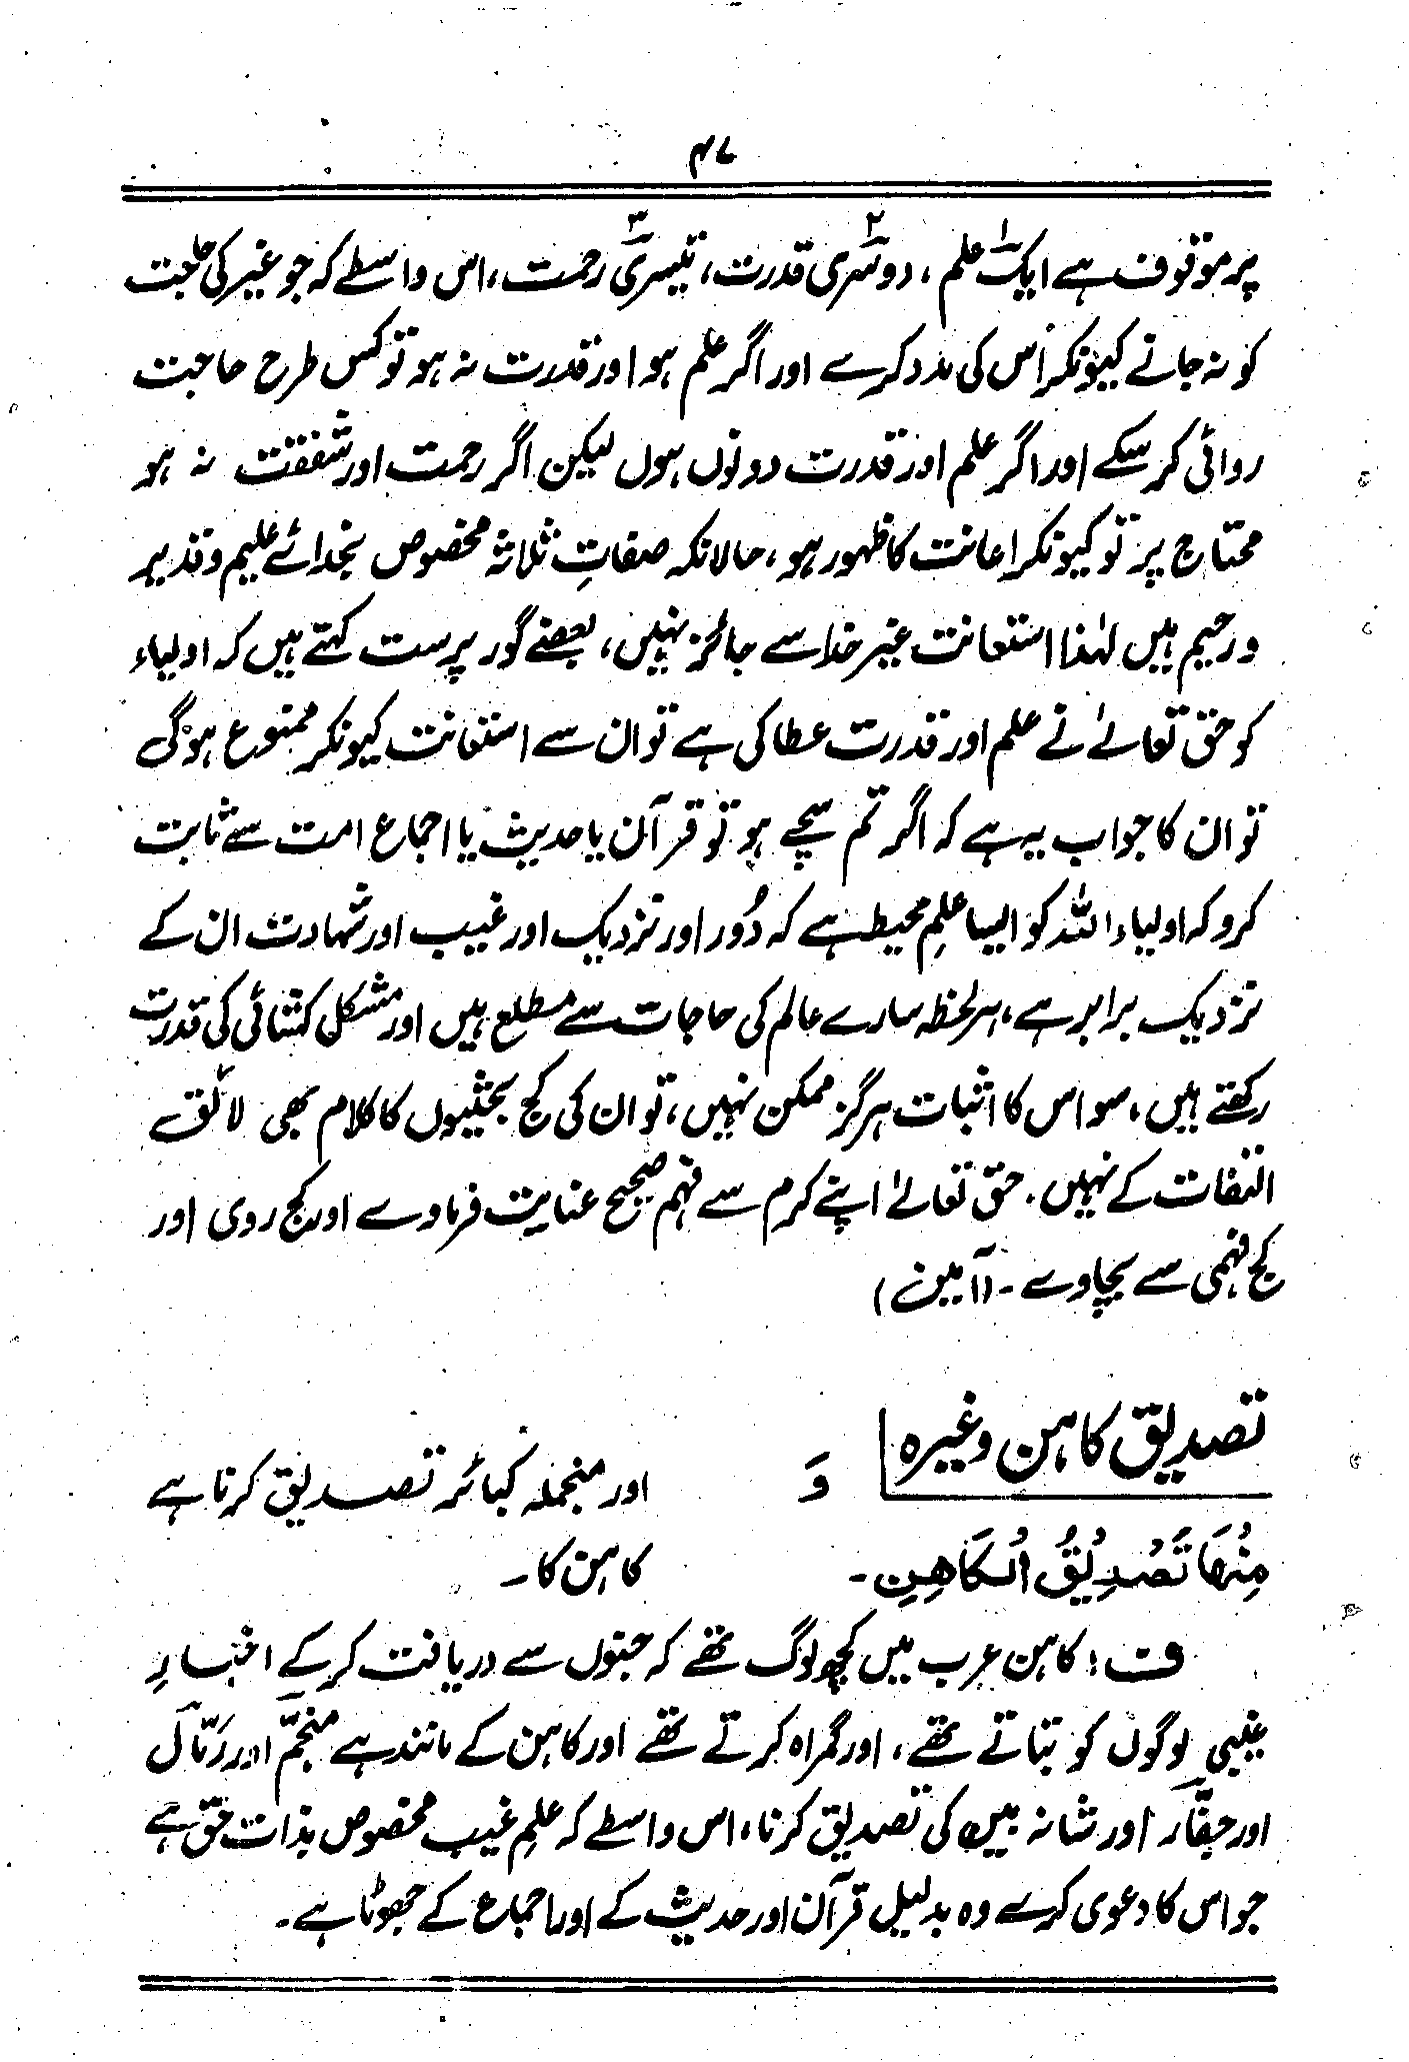 ۴۷
پر موقوف ہے ایک۱ علم، دوسری۲ قدرت، تیسری۳ رحمت، اس واسطے کہ جو غیر کی حاجت
کو نہ جانے کیونکر اُس کی مدد کرے اور اگر علم ہو اور قدرت نہ ہو تو کس طرح حاجت
روائی کر سکے اور اگر علم اور قدرت دونوں ہوں لیکن اگر رحمت اور شفقت نہ ہو
محتاج پر تو کیونکر اعانت کا ظہور ہو، حالانکہ صفاتِ ثلاثہ مخصوص بخدائے علیم و قدیر
و رحیم ہیں لہٰذا استعانت غیر خدا سے جائز نہیں، بعضے گور پرست کہتے ہیں کہ اولیاء
کو حق تعالےٰ نے علم اور قدرت عطا کی ہے تو ان سے استعانت کیونکر ممنوع ہوگی
تو ان کا جواب یہ ہے کہ اگر تم سچے ہو تو قرآن یا حدیث یا اجماع امت سے ثابت
کرو کہ اولیاء اللہ کو ایسا علمِ محیط ہے کہ دُور اور نزدیک اور غیب اور شہادت ان کے
نزدیک برابر ہے، ہر لحظہ سارے عالم کی حاجات سے مطلع ہیں اور مشکل کشائی کی قدرت
رکھتے ہیں، سو اس کا اثبات ہرگز ممکن نہیں، تو ان کی کج بحثیوں کا کلام بھی لائق
التفات کے نہیں۔ حق تعالےٰ اپنے کرم سے فہم صحیح عنایت فرمادے اور کج روی اور
کج فہمی سے بچاوے۔ (آمین)
تصدیق کاہن وغیرہ
وَ
مِنْهَا تَصْدِيْقُ الْكَاهِنِ۔
اور منجملہ کبائر تصدیق کرنا ہے
کاہن کا۔
ف: کاہن عرب میں کچھ لوگ تھے کہ جنوں سے دریافت کرکے اخبارِ
غیبی لوگوں کو بتاتے تھے، اور گمراہ کرتے تھے اور کاہن کے مانند ہے منجّم اور رَمّال
اور جفّار اور شانہ بین کی تصدیق کرنا، اس واسطے کہ علمِ غیب مخصوص بذات حق ہے
جو اس کا دعوی کرے وہ بدلیل قرآن اور حدیث کے اور اجماع کے جھوٹا ہے۔